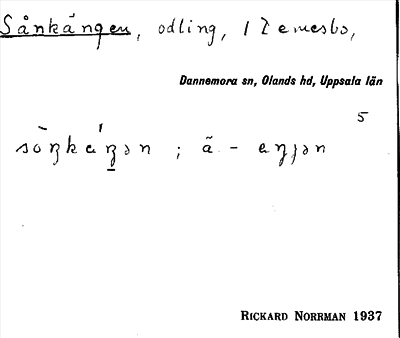 Sånkängen, odling, i Zemesbo,
Dannemora sn, Olands hd, Uppsala län
5
sòŋkáŋən ; ã - eŋɟən
RICKARD NORRMAN 1937